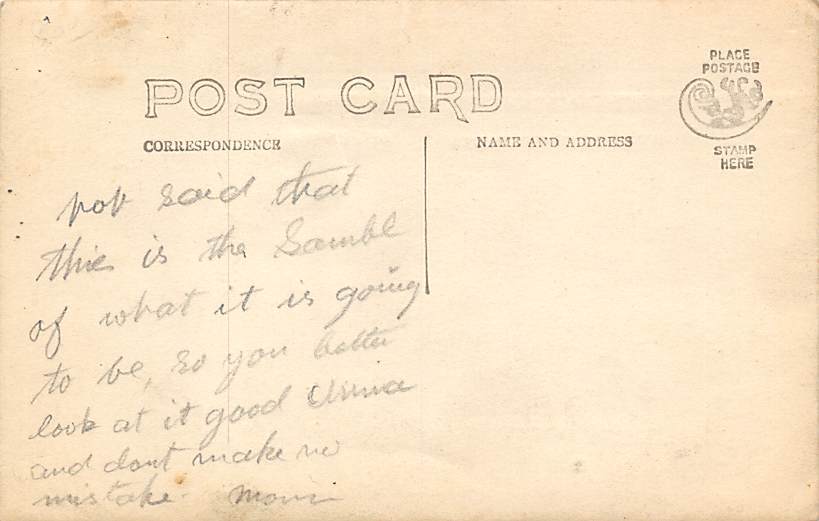 PLACE
POSTAGE
POST CARD
STAMP
HERE
CORRESPONDENCE
NAME AND ADDRESS
pop said that
this is the Samble
of what it is going
to be, so you better
look at it good
and dont make no
mistake. Mom